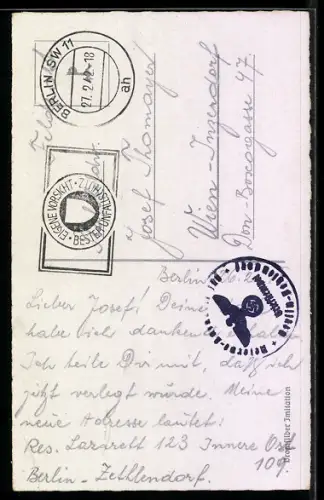 BERLIN SW 11
27.2.42-18
ah
EIGENE VORSICHT
BESTER UNFALLSCHUTZ
Josef Thomayer
Wien-Inzersdorf
Don-Boscogasse 47.
Berlin, 26.2.
Lieber Josef! Deine
habe ich dankend erhalten.
Ich teile Dir mit, daß ich
jetzt verlegt wurde. Meine
neue Adresse lautet:
Res. Lazarett 123 Innere Ost
109
Berlin-Zehlendorf.
Bromsilber Imitation